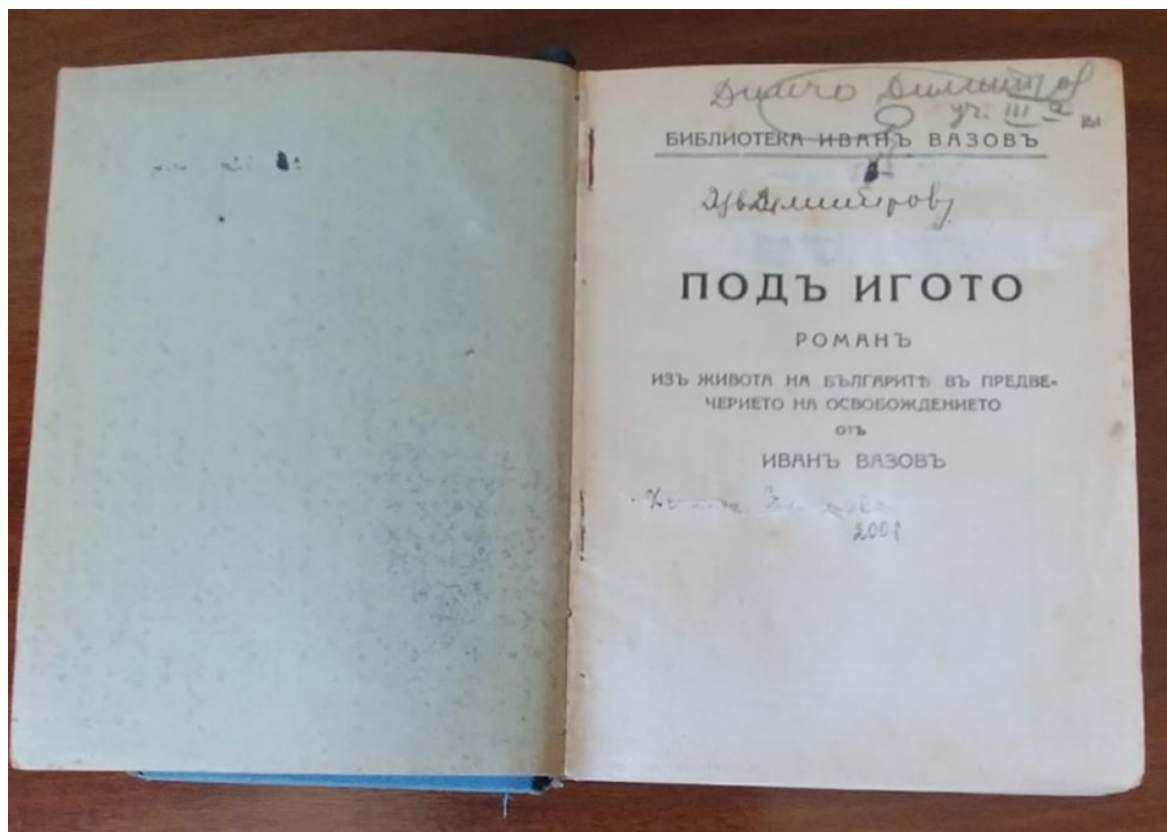 Димчо Димитров
уч. III а кл
БИБЛИОТЕКА ИВАНЪ ВАЗОВЪ
Димитровъ
ПОДЪ ИГОТО
РОМАНЪ
ИЗЪ ЖИВОТА НА БЪЛГАРИТѢ ВЪ ПРЕДВЕ-
ЧЕРИЕТО НА ОСВОБОЖДЕНИЕТО
ОТЪ
ИВАНЪ ВАЗОВЪ